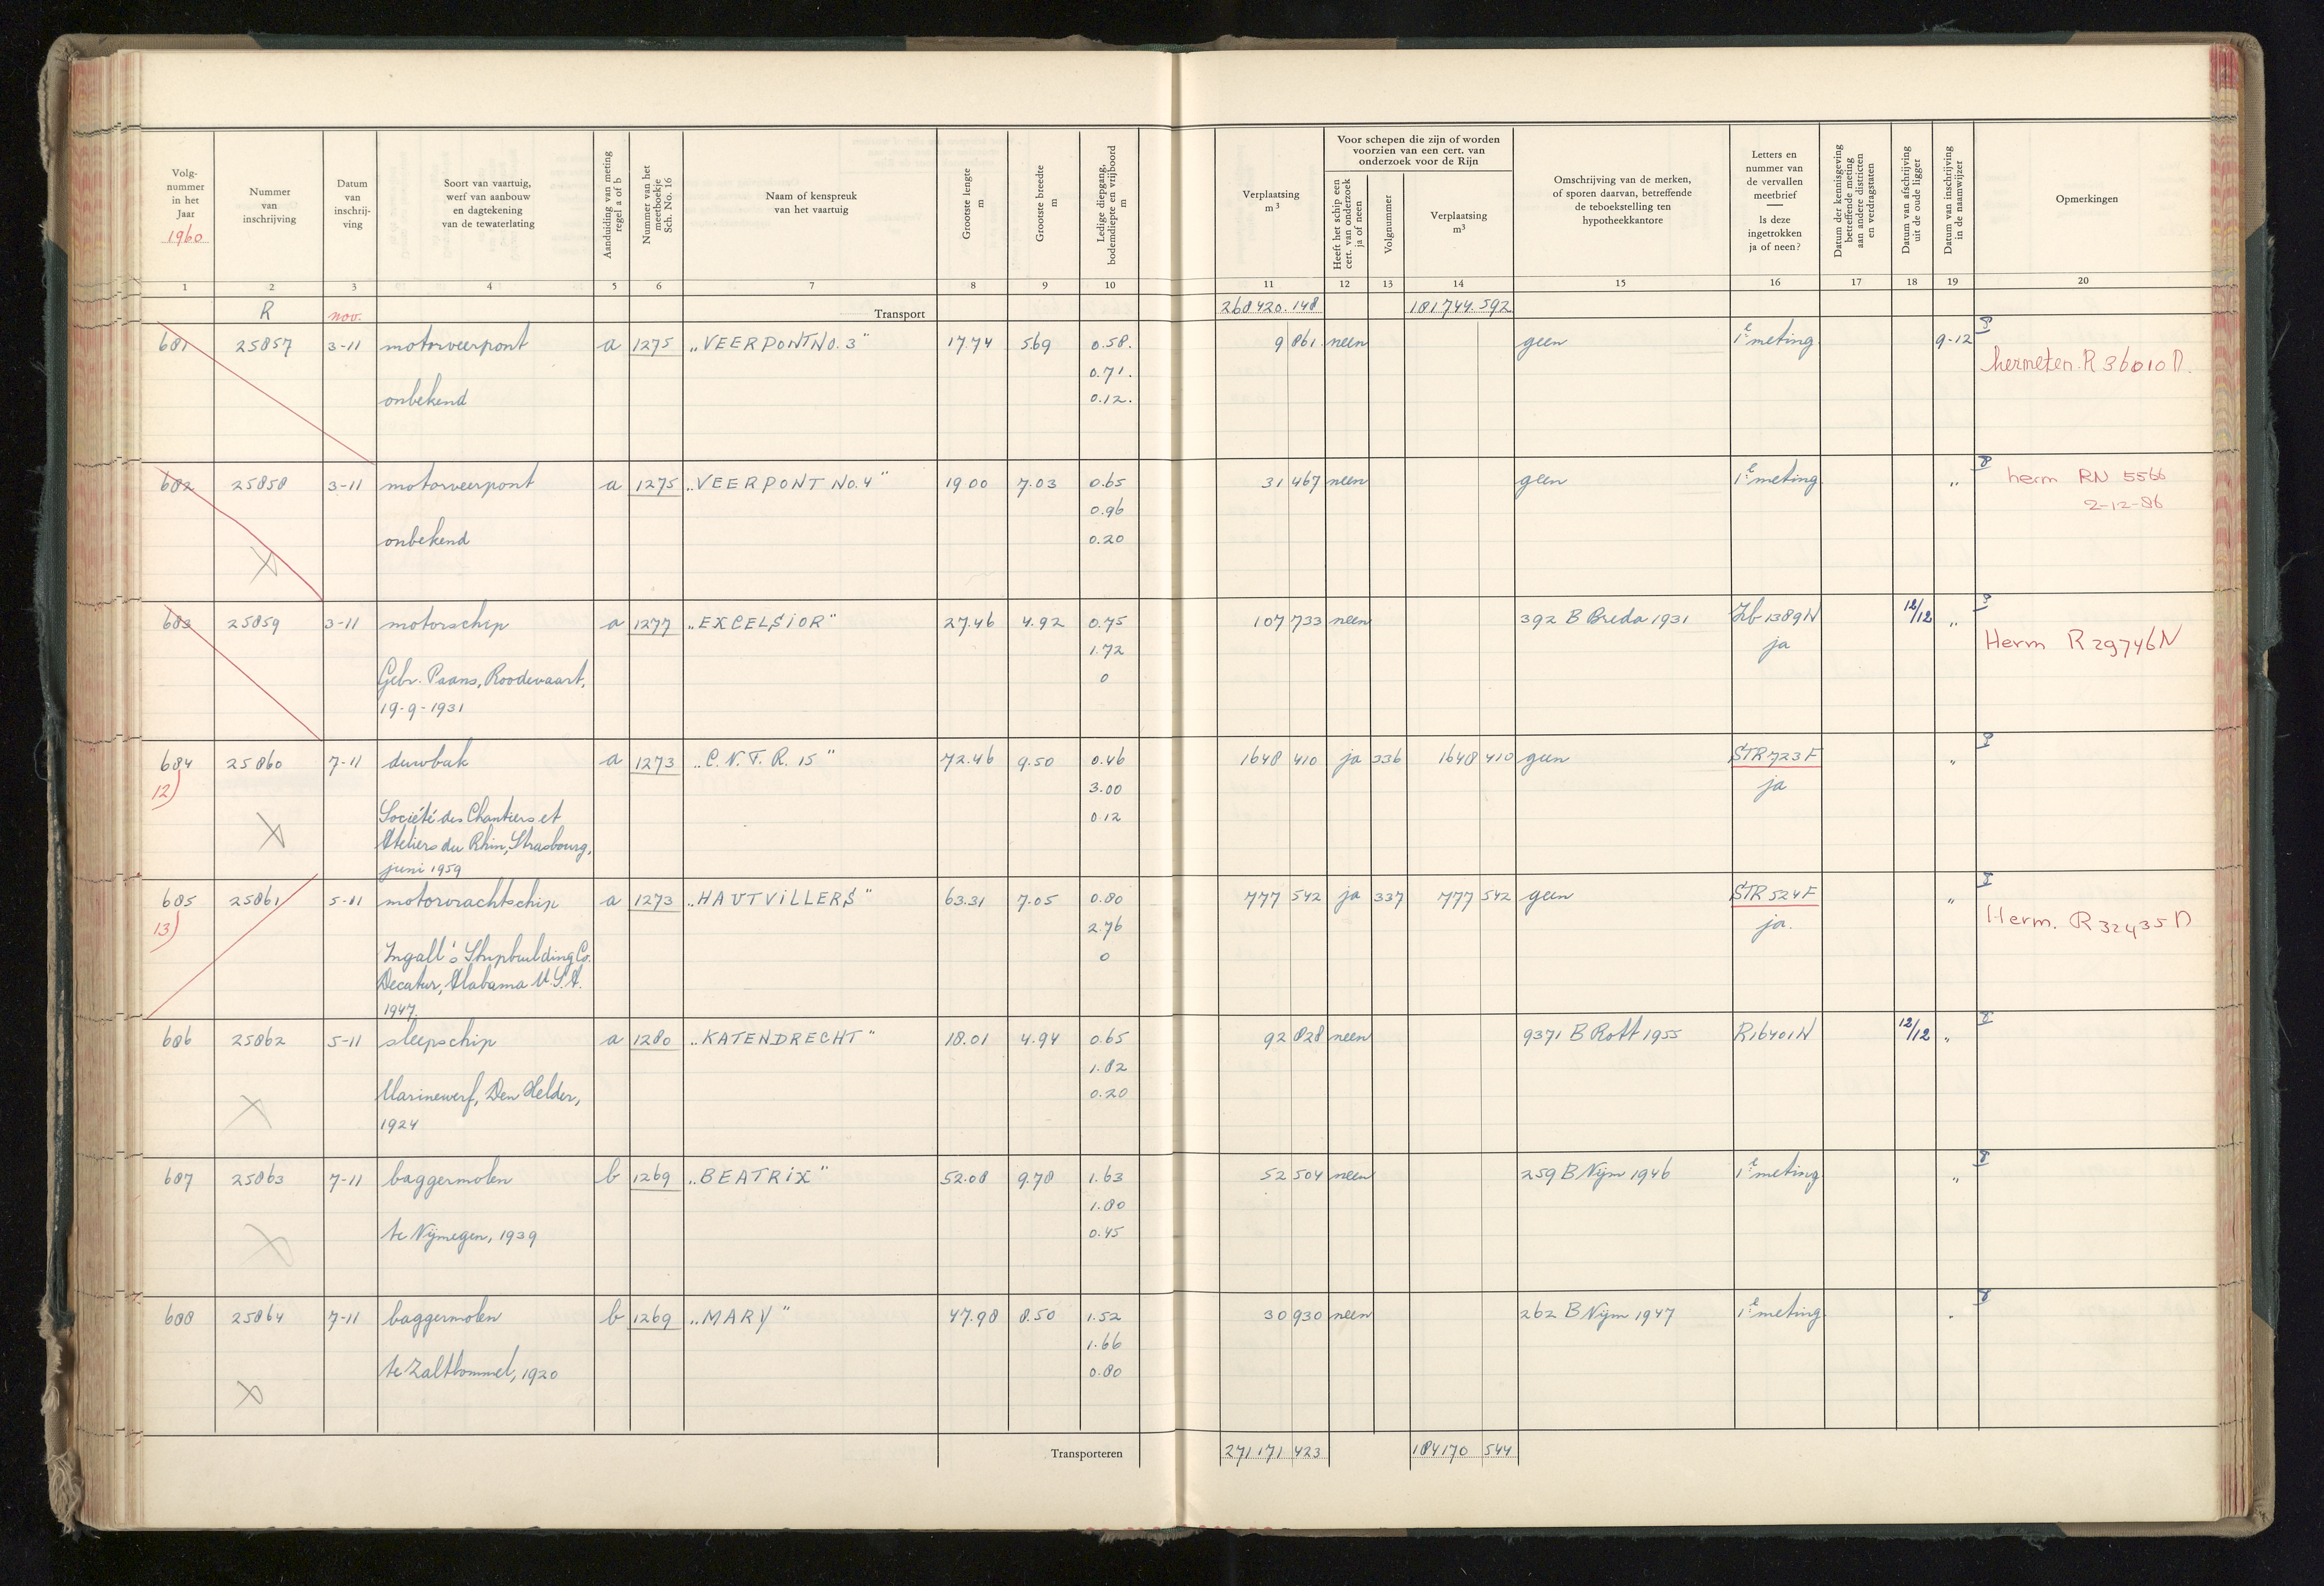 Volg-nummer in het Jaar 1960
Nummer van inschrijving
Datum van inschrij-ving
Soort van vaartuig, werf van aanbouw en dagtekening van de tewaterlating
Aanduiding van meting regel a of b
Nummer van het meetboekje Sch. No. 16
Naam of kenspreuk van het vaartuig
Grootste lengte m
Grootste breedte m
Ledige diepgang, bodemdiepte en vrijboord m
Verplaatsing m³
Voor schepen die zijn of worden voorzien van een cert. van onderzoek voor de Rijn
Heeft het schip een cert. van onderzoek ja of neen
Volgnummer
Verplaatsing m³
Omschrijving van de merken, of sporen daarvan, betreffende de teboekstelling ten hypotheekkantore
Letters en nummer van de vervallen meetbrief — Is deze ingetrokken ja of neen?
Datum der kennisgeving betreffende meting aan andere districten en verdragstaten
Datum van afschrijving uit de oude ligger
Datum van inschrijving in de naamwijzer
Opmerkingen
1 2 3 4 5 6 7 8 9 10 11 12 13 14 15 16 17 18 19 20
R nov. Transport 268420.148 181744.592
681 25857 3-11 motorveerpont a 1275 „VEERPONT NO. 3" 17.74 5.69 0.58. 9 861 neen geen 1e meting 9-12
0.71. hermeten R 36010 N.
onbekend 0.12.
682 25858 3-11 motorveerpont a 1275 „VEERPONT NO. 4" 19 00 7.03 0.65 31 467 neen geen 1e meting „ herm RN 5566
0.96 2-12-86
onbekend 0.20
683 25859 3-11 motorschip a 1277 „EXCELSiOR" 27.46 4.92 0.75 107 733 neen 392 B Breda 1931 Zb 1389 N 12/12 „
1.72 ja Herm R 29746 N
Gebr. Paans, Roodevaart, 0
19-9-1931
684 25860 7-11 duwbak a 1273 „C.N.T.R. 15" 72.46 9.50 0.46 1648 410 ja 336 1648 410 geen STR 723 F „
12) 3.00 ja
Société des Chantiers et 0.12
Ateliers du Rhin, Strasbourg,
juni 1959
685 25861 5-11 motorvrachtschip a 1273 „HAUTViLLERS" 63.31 7.05 0.80 777 542 ja 337 777 542 geen STR 524 F „
13) 2.76 ja. Herm. R 32435 N
Ingall's Shipbuilding Co. 0
Decatur, Alabama U.S.A.
1947.
686 25862 5-11 sleepschip a 1280 „KATENDRECHT" 18.01 4.94 0.65 92 828 neen 9371 B Rott 1955 R16401N 12/12 „
1.82
Marinewerf, Den Helder, 0.20
1924
687 25863 7-11 baggermolen b 1269 „BEATRiX" 52.08 9.78 1.63 52 504 neen 259 B Nijm 1946 1e meting „
1.80
te Nijmegen, 1939 0.45
688 25864 7-11 baggermolen b 1269 „MARY" 47.98 8.50 1.52 30 930 neen 262 B Nijm 1947 1e meting
1.66
te Zaltbommel, 1920 0.80
Transporteren 271171 423 184170 544